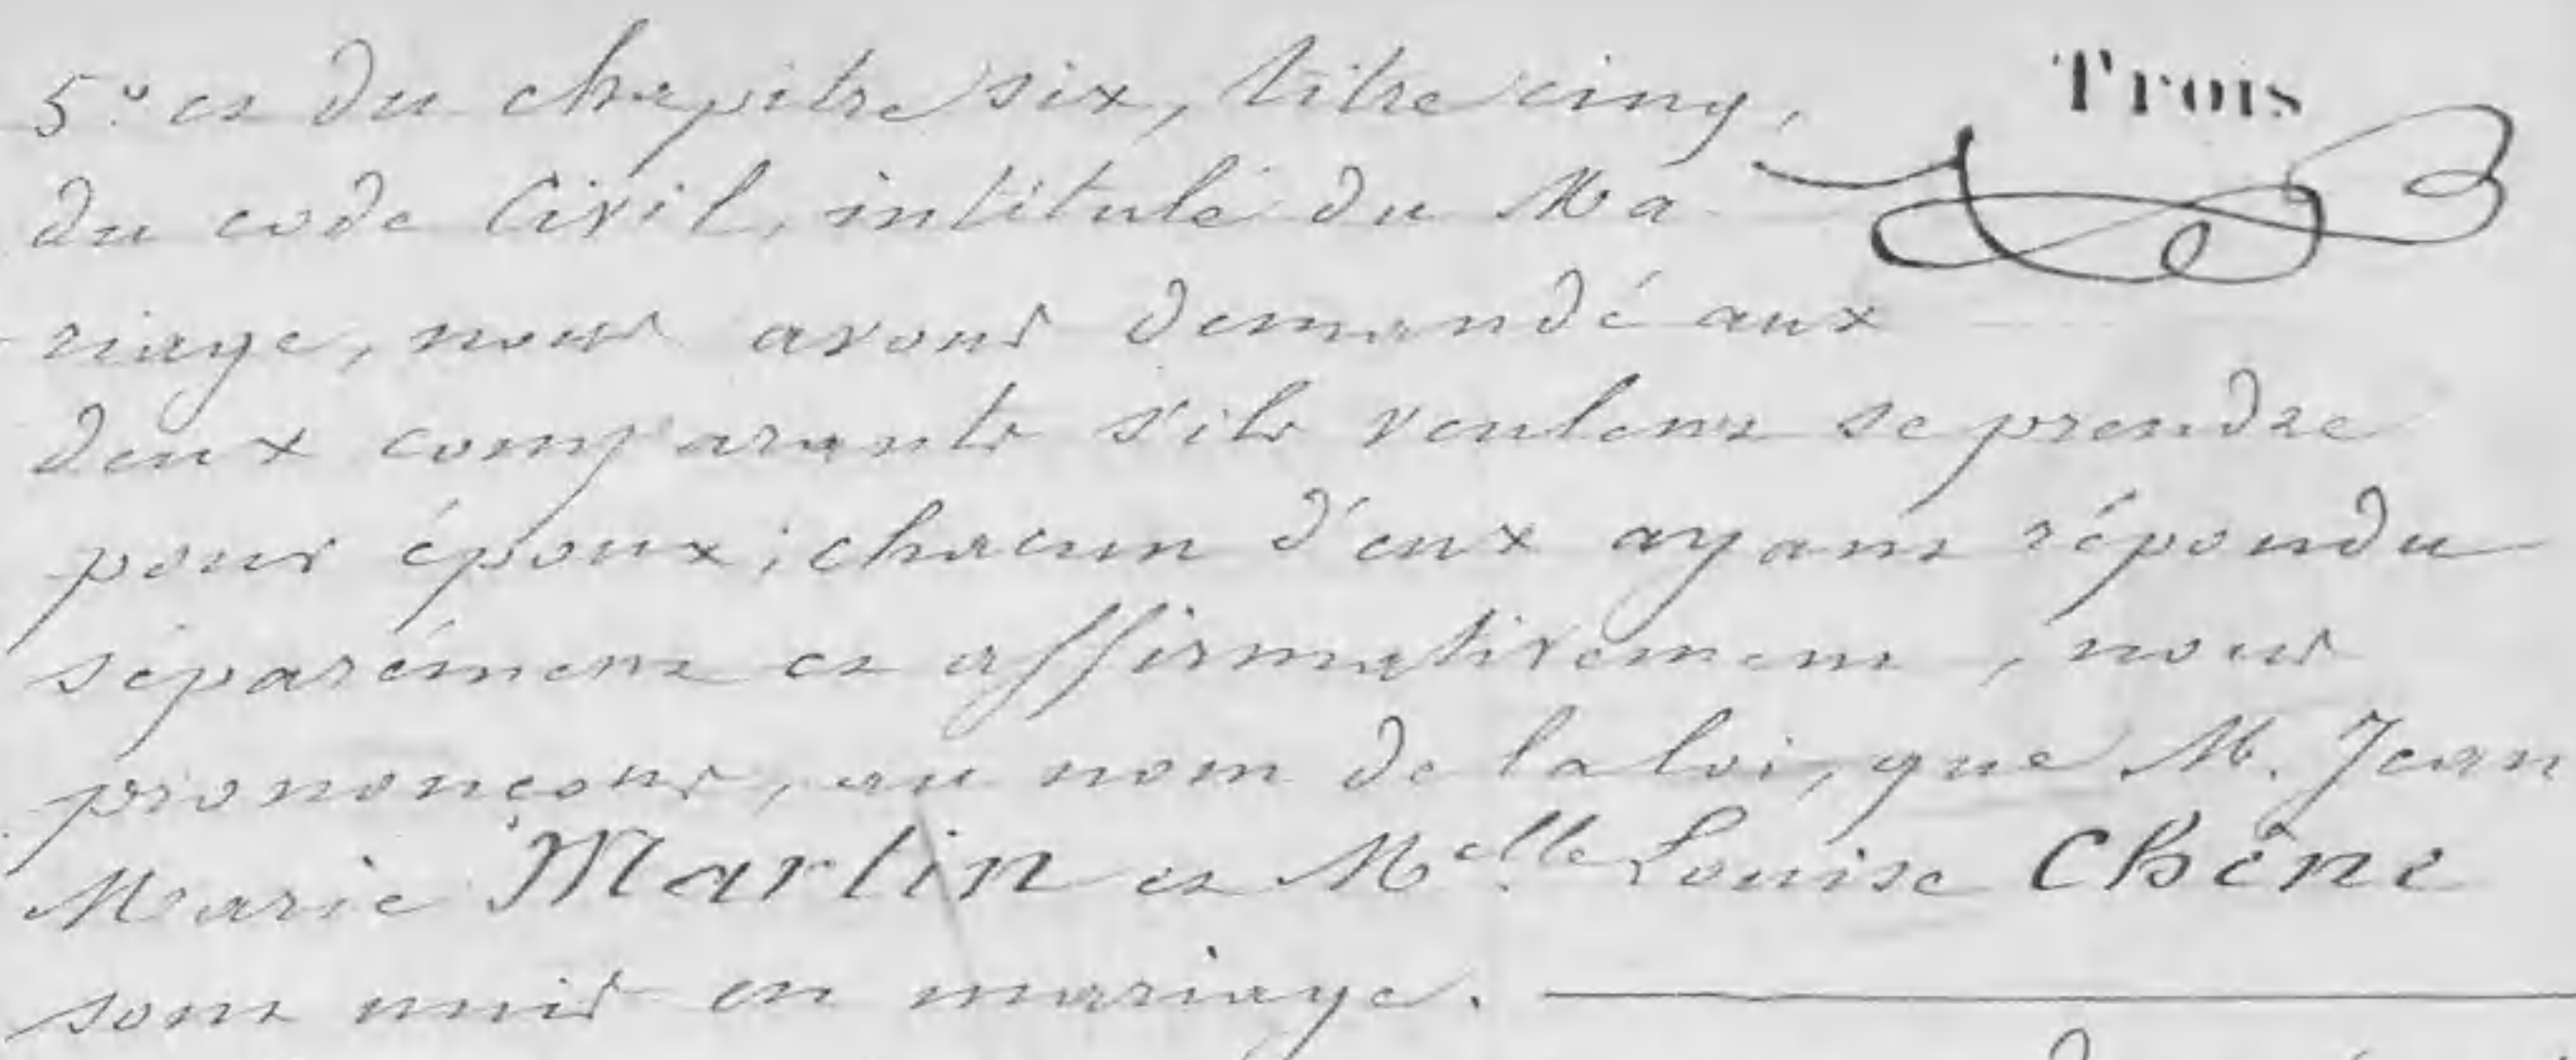 5º et du chapitre six, titre cinq,
Trois
du code Civil, intitulé du Ma
riage, nous avons demandé aux
deux comparants s'ils veulent se prendre
pour époux; chacun d'eux ayant répondu
séparément et affirmativement, nous
prononçons, au nom de la loi, que M. Jean
Marie Martin et Melle Louise Chêne
sont unis en mariage.